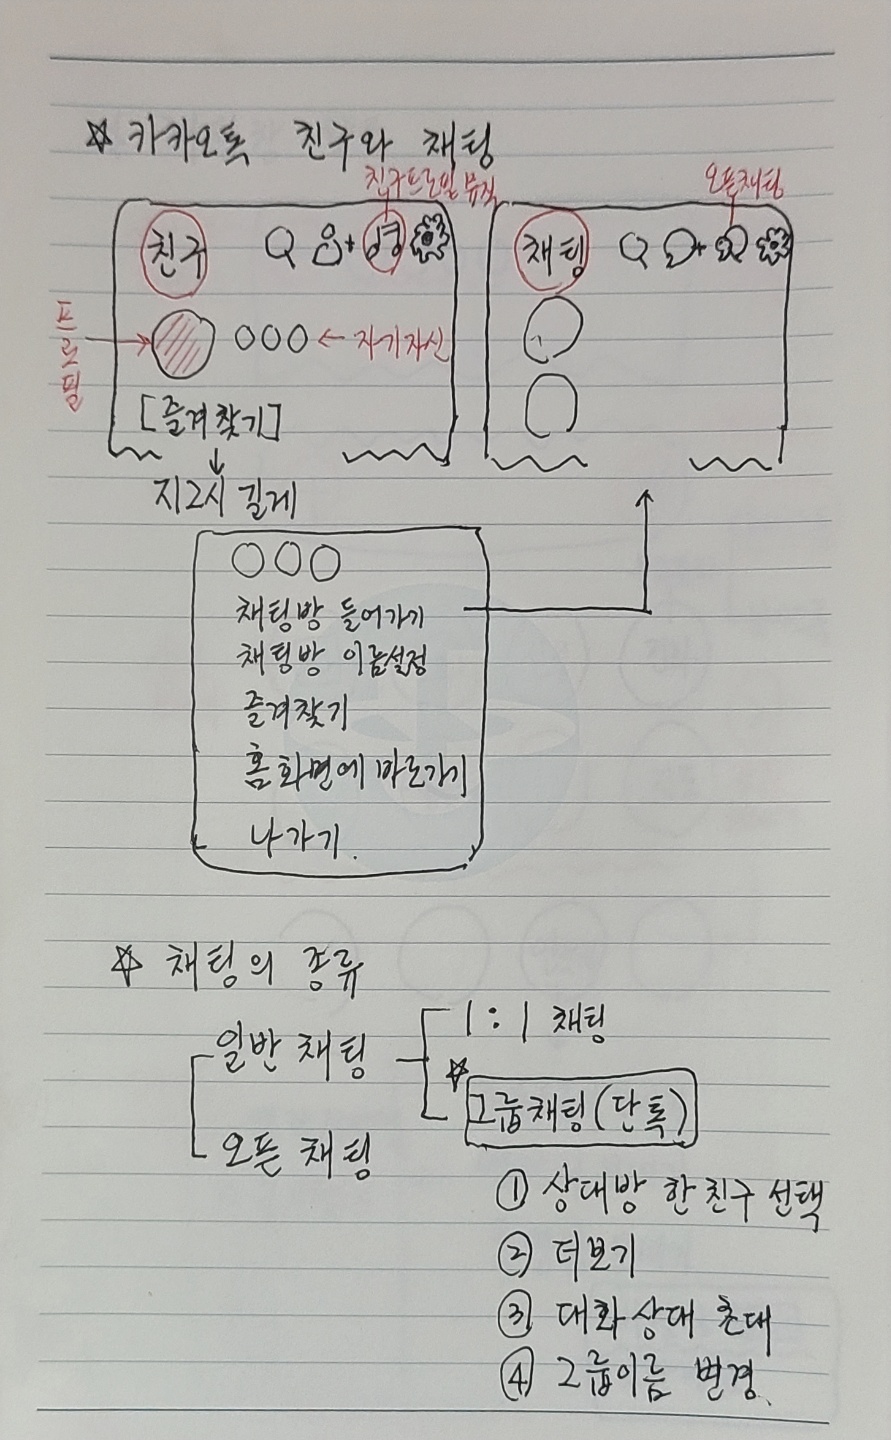 ☆ 카카오톡 친구와 채팅
친구프로필 뮤직
오픈채팅
친구
채팅
프로필
OOO ← 자기자신
[즐겨찾기]
↓
길게
OOO
채팅방 들어가기
채팅방 이름설정
즐겨찾기
홈화면에 바로가기
나가기.
☆ 채팅의 종류
일반 채팅
1:1 채팅
☆ 그룹채팅(단톡)
오픈 채팅
① 상대방 한 친구 선택
② 더보기
③ 대화상대 초대
④ 그룹이름 변경.